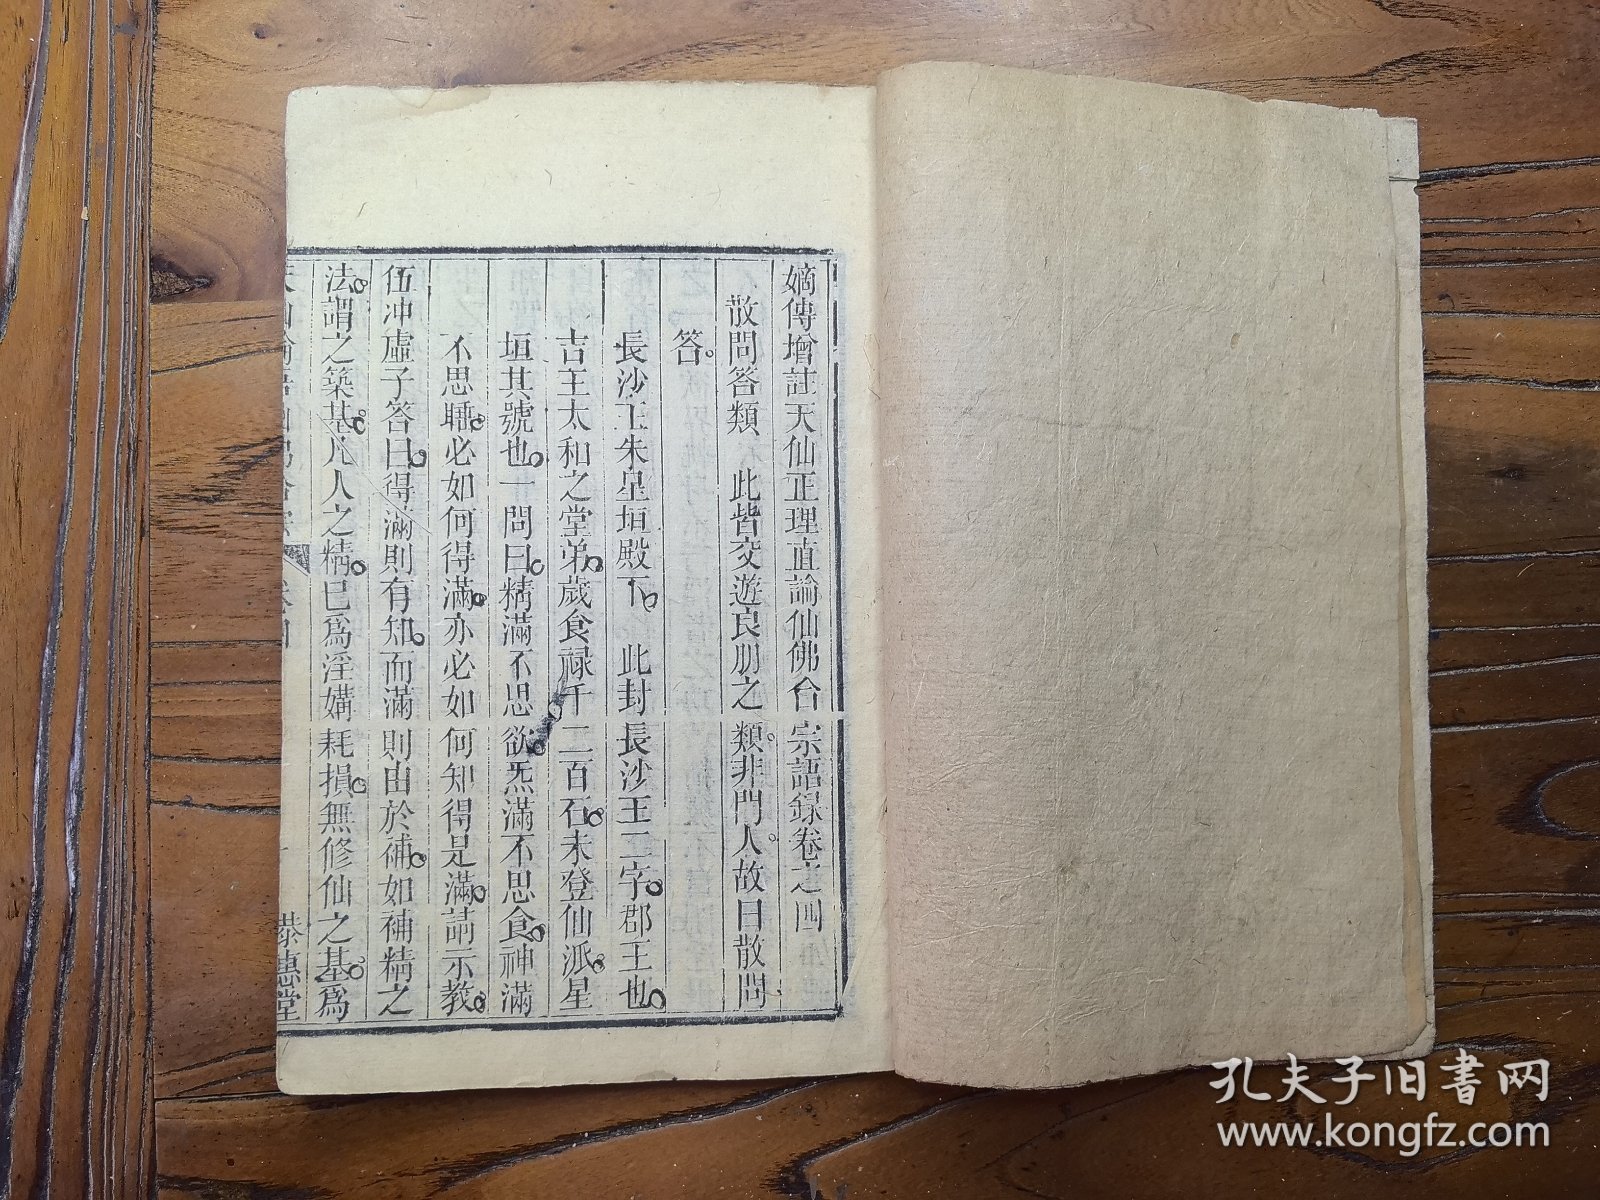 嫡傳增註天仙正理直論仙佛合宗語錄卷之四
散問答類 此皆交遊良朋之類。非門人。故曰散問
答。
長沙王朱星垣殿下。 此封長沙王二字。郡王也。
吉王太和之堂弟。歲食祿千二百石。未登仙派。星
垣其號也。一問曰。精滿不思欲。炁滿不思食。神滿
不思睡。必如何得滿。亦必如何知得是滿。請示教。
伍冲虛子答曰。得滿則有知。而滿則由於補。如補精之
法。謂之築基。凡人之精。已爲淫媾耗損。無修仙之基。爲
恭蕙堂
孔夫子旧書网
www.kongfz.com